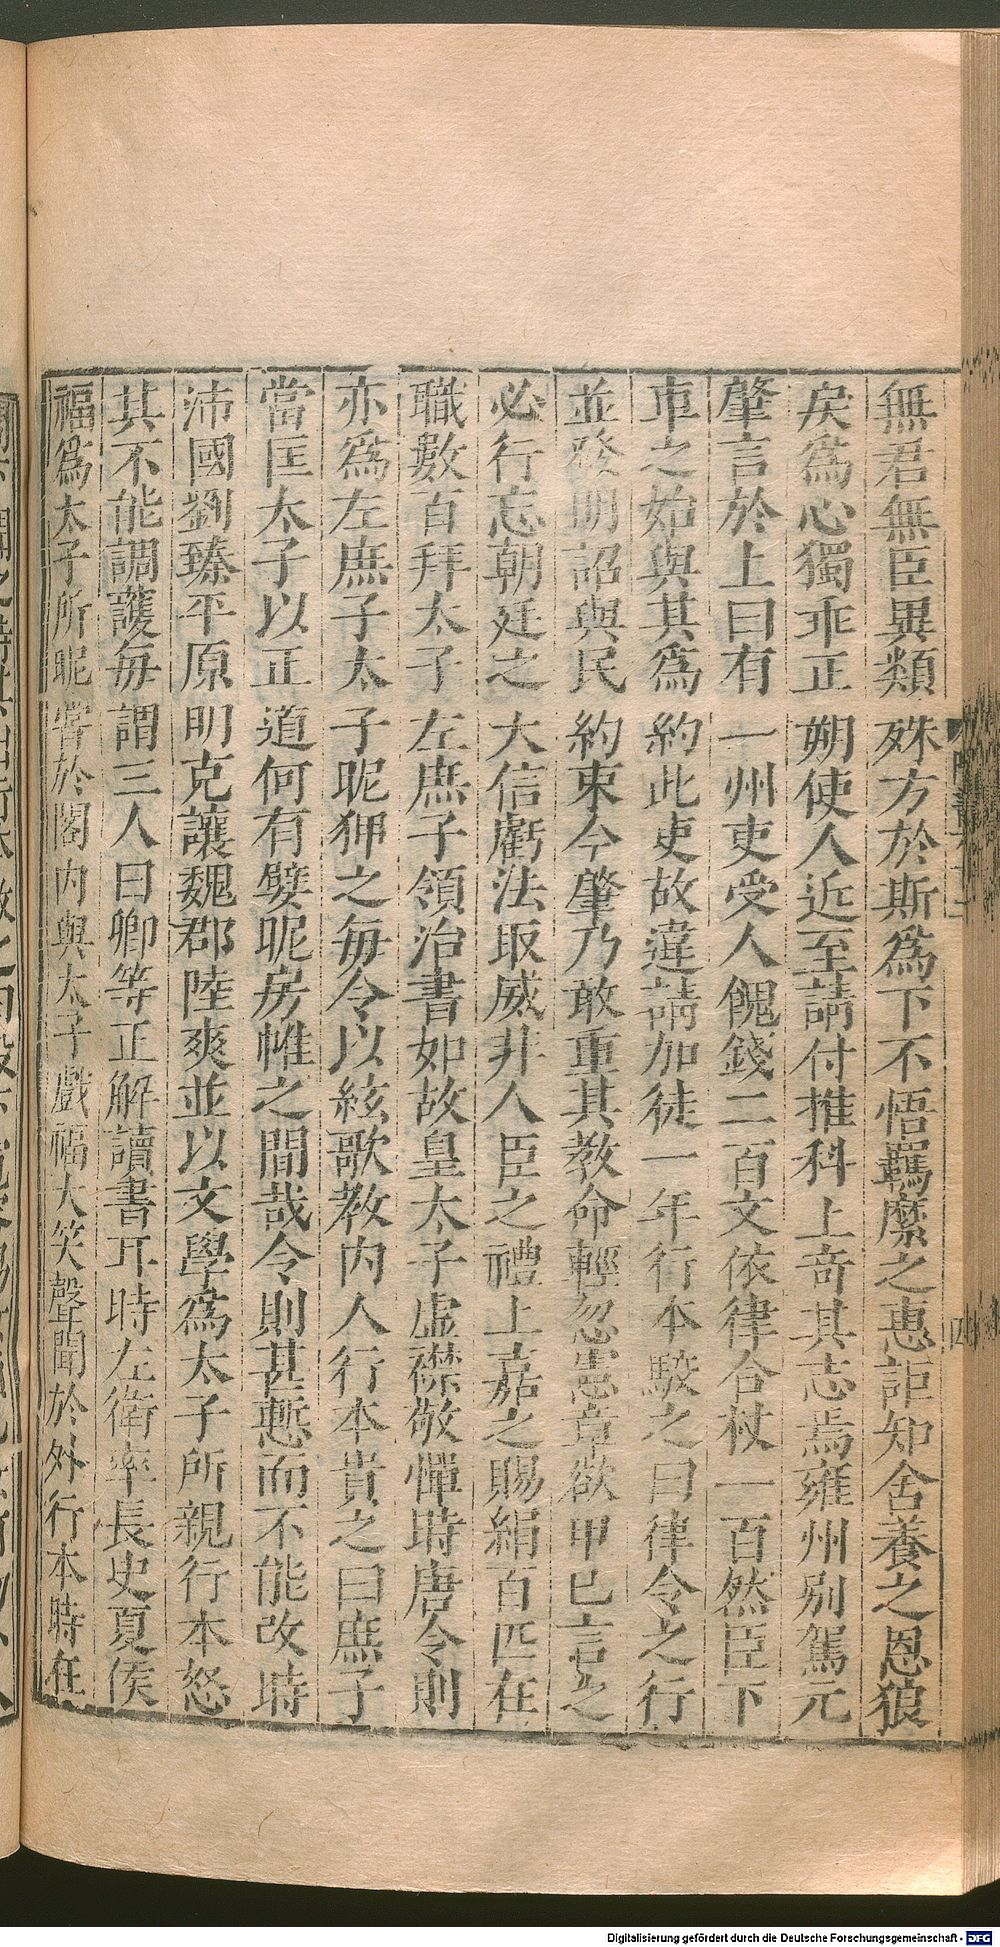 無君無臣異類殊方於斯爲下不悟羈縻之惠詎知含養之恩狼
戾爲心獨乖正朔使人近至請付推科上奇其志焉雍州別駕元
肇言於上曰有一州吏受人餽錢二百文依律合杖一百然臣下
車之始與其爲約此吏故違請加徒一年行本駮之曰律令之行
並發明詔與民約束今肇乃敢重其教命輕忽憲章欲申已言之
必行忘朝廷之大信虧法取威非人臣之禮上嘉之賜絹百匹在
職數百拜太子左庶子領治書如故皇太子虛襟敬憚時唐令則
亦爲左庶子太子昵狎之每令以絃歌教內人行本責之曰庶子
當匡太子以正道何有嬖昵房帷之間哉令則甚慙而不能改時
沛國劉臻平原明克讓魏郡陸爽並以文學爲太子所親行本怒
其不能調護每謂三人曰卿等正解讀書耳時左衛率長史夏侯
福爲太子所昵嘗於閤內與太子戲福大笑聲聞於外行本時在
四
Digitalisierung gefördert durch die Deutsche Forschungsgemeinschaft - DFG